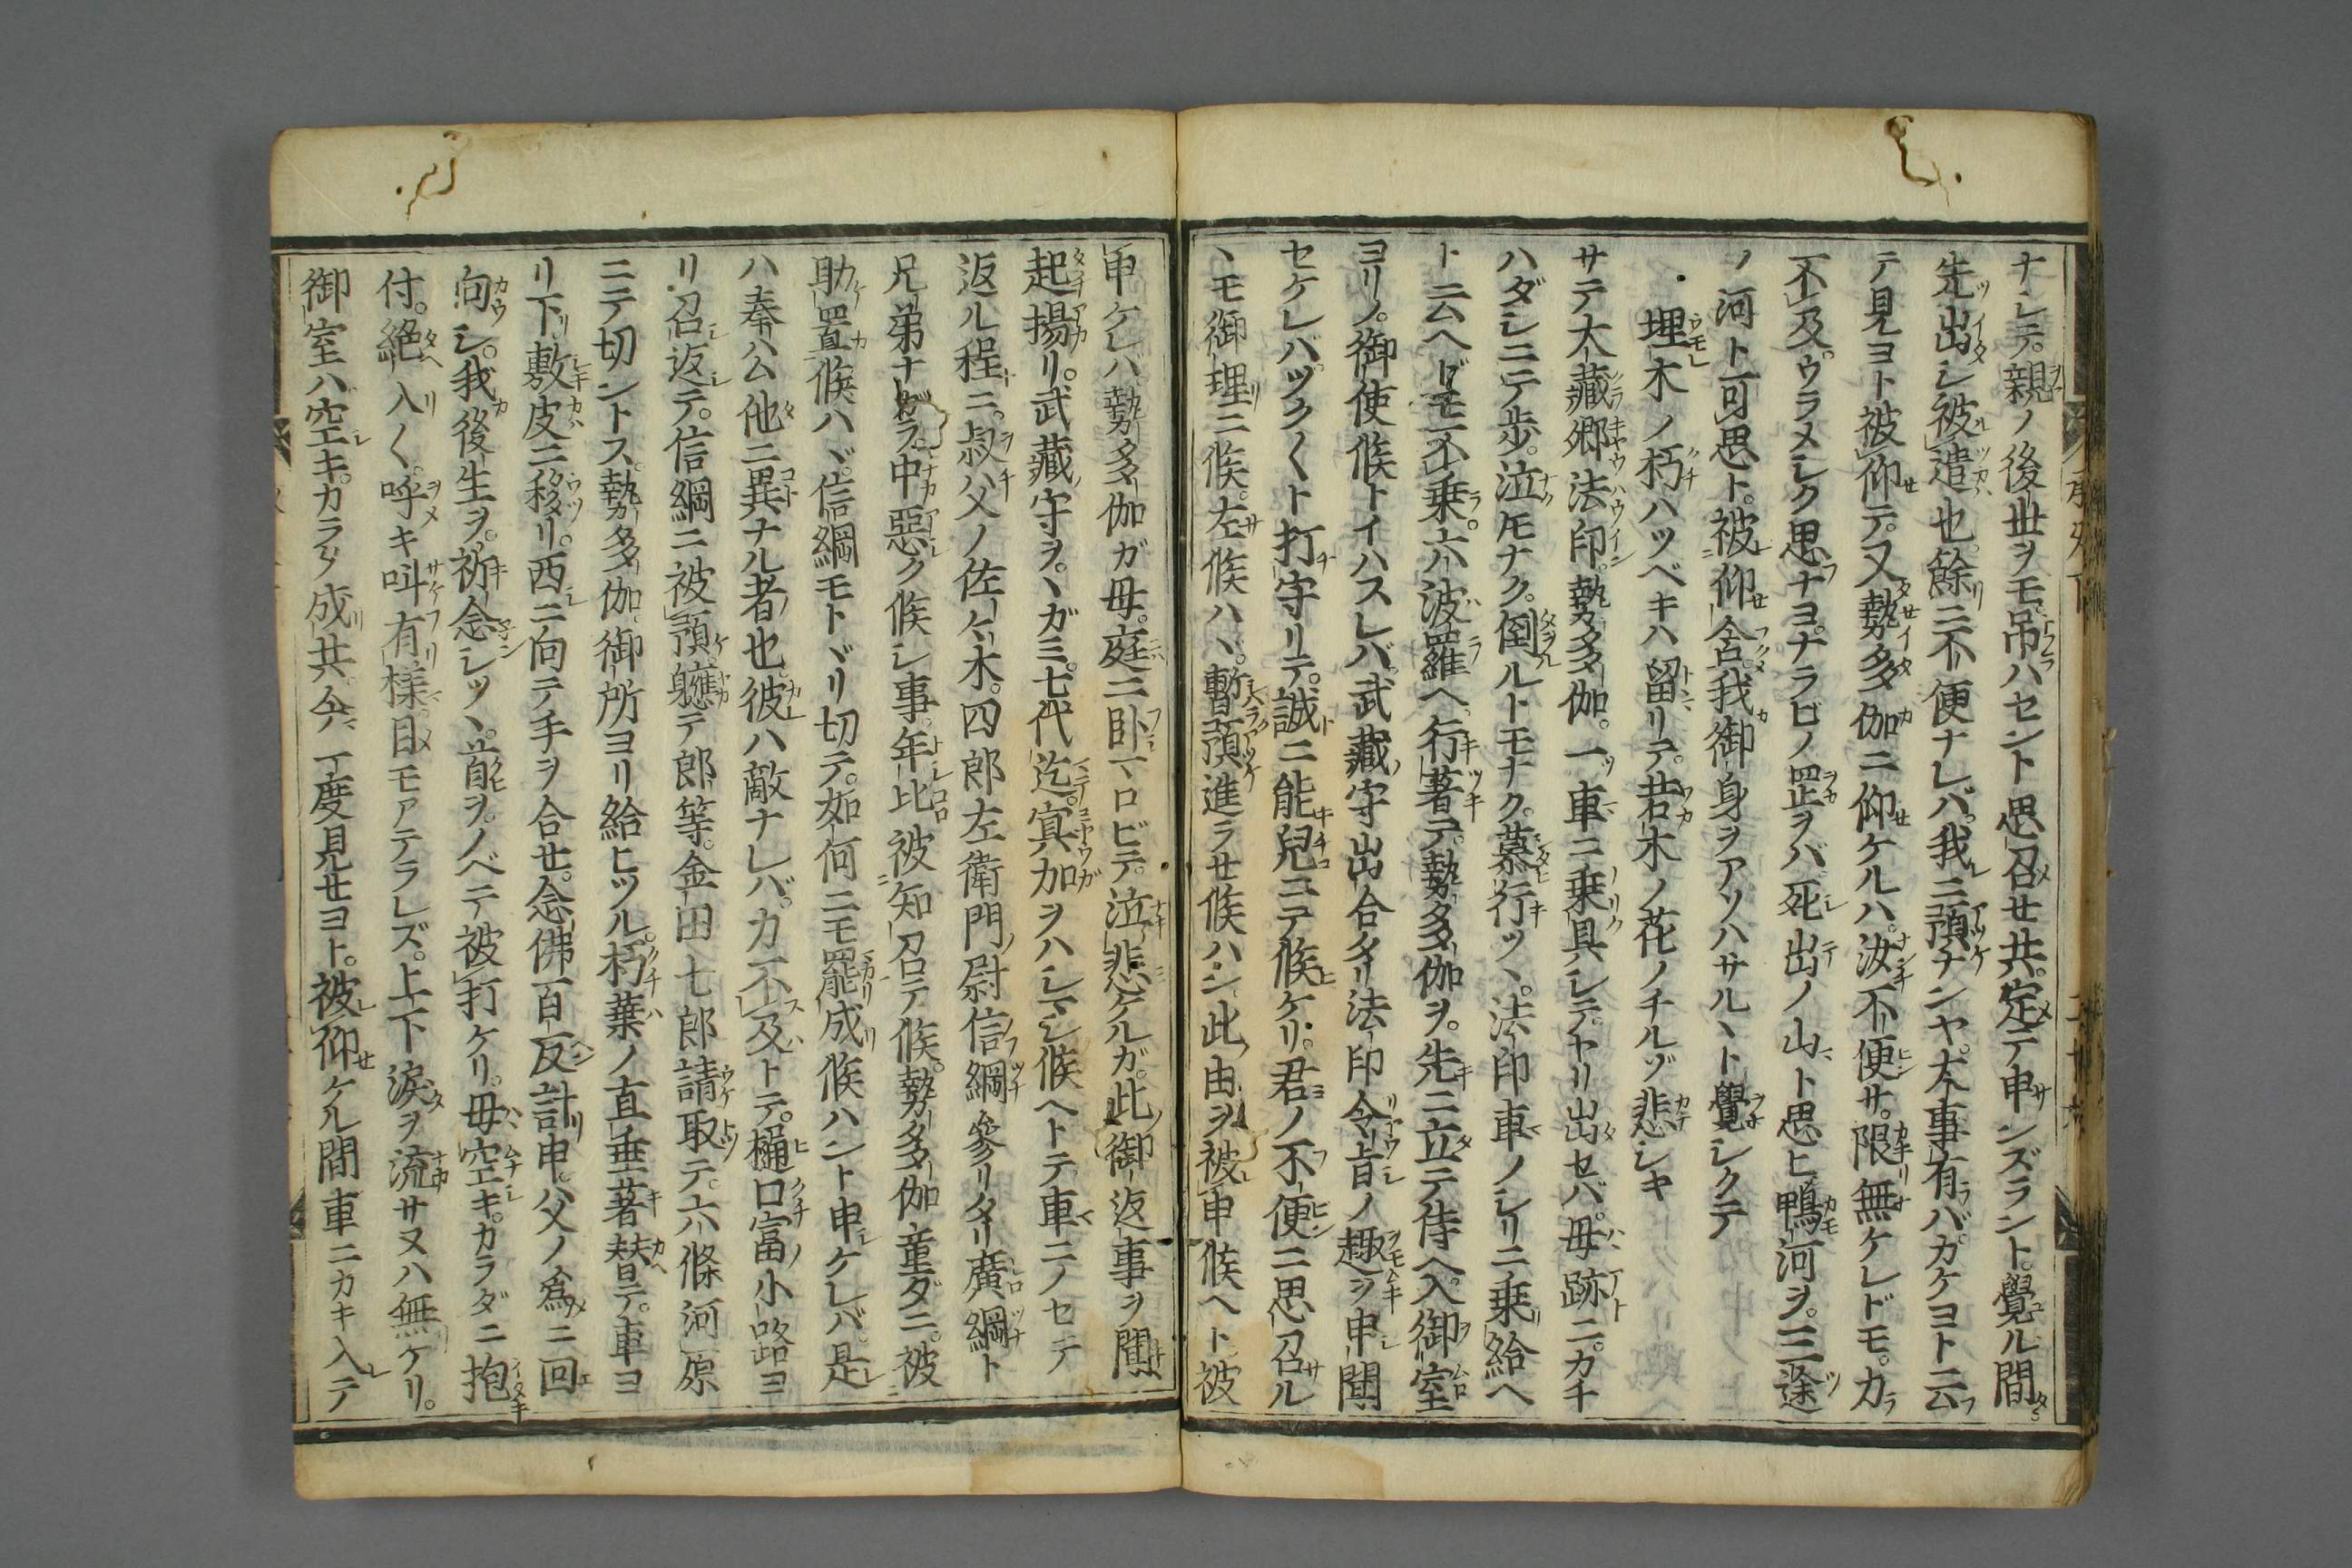 ナレテ。親ノ後世ヲモ吊ハセント思召せ共。定テ申ンズラント。覺ル間
先出シ被遣也。餘ニ不便ナレバ。我ニ預ナンヤ。大事有バ。ガケヨト云
テ見ヨト被仰テ。又勢多伽ニ仰ケルハ。汝不便サ。限無ケレドモ。カ
不及。ウラメシク思ナヨ。ナラビノ罡ヲバ死出ノ山ト思ヒ。鴨河ヲ。三途
ノ河ト可思ト。被仰含我御身ヲアソハサル丶ト覺シクテ
埋木ノ朽ハツベキハ留リテ。若木ノ花ノチルゾ悲シキ
サテ大藏卿法印。勢多伽。一車ニ乗具シテ。ヤリ出セバ。母跡ニ。カチ
ハダシニテ歩。泣モナク。倒ルトモナク。慕行ツ丶。法印車ノシリニ乗給ヘ
ト云ヘドモ不乗。六波羅ヘ行著テ。勢多伽ヲ。先ニ立テ侍ヘ入。御室
ヨリノ。御使候トイハスレバ。武藏守出合タリ。法印令旨ノ趣ヲ申聞
セケレバ。ツク〱ト打守リテ。誠ニ能兒ニテ候ケリ。君ノ不便ニ思召ル
丶モ御理ニ候。左候ハヾ。暫預進ラせ候ハン。此由ヲ被申候ヘト。被
申ケレバ。勢多伽ガ母。庭ニ臥マロビテ。泣悲ケルガ。此御返事ヲ聞
起揚リ。武藏守ヲ、ガミ。七代迄。冥加ヲハシマシ候ヘトテ。車ニノセテ
返ル程ニ。叔父ノ佐々木。四郎左衛門ノ尉信綱參リタリ。廣綱ト
兄弟ナガラ。中惡ク候シ事。年比被知召テ候。勢多伽童ダニ。被
助置候ハヾ。信綱モトヾリ切テ。如何ニモ罷成候ハント申ケレバ。是
ハ奉公他ニ異ナル者也。彼ハ敵ナレバ。カ不及トテ。樋口富小路ヨ
リ召返テ。信綱ニ被預。軈テ郎等。金田七郎請取テ。六條河原
ニテ切ントス。勢多伽御所ヨリ給ヒツル。朽葉ノ直垂著替テ。車ヨ
リ下。敷皮ニ移リ。西ニ向テ手ヲ合せ。念佛百反計申。父ノ為ニ回
向シ。我後生ヲ。祈念シツ丶。首ヲ。ノベテ被打ケリ。母空キ。カラダニ抱
付。絶入〱。呼キ叫有樣。目モアテラレズ。上下涙ヲ流サヌハ無ケリ。
御室ハ空キ。カラダ成共今一度見せヨト。被仰ケル間車ニカキ入テ